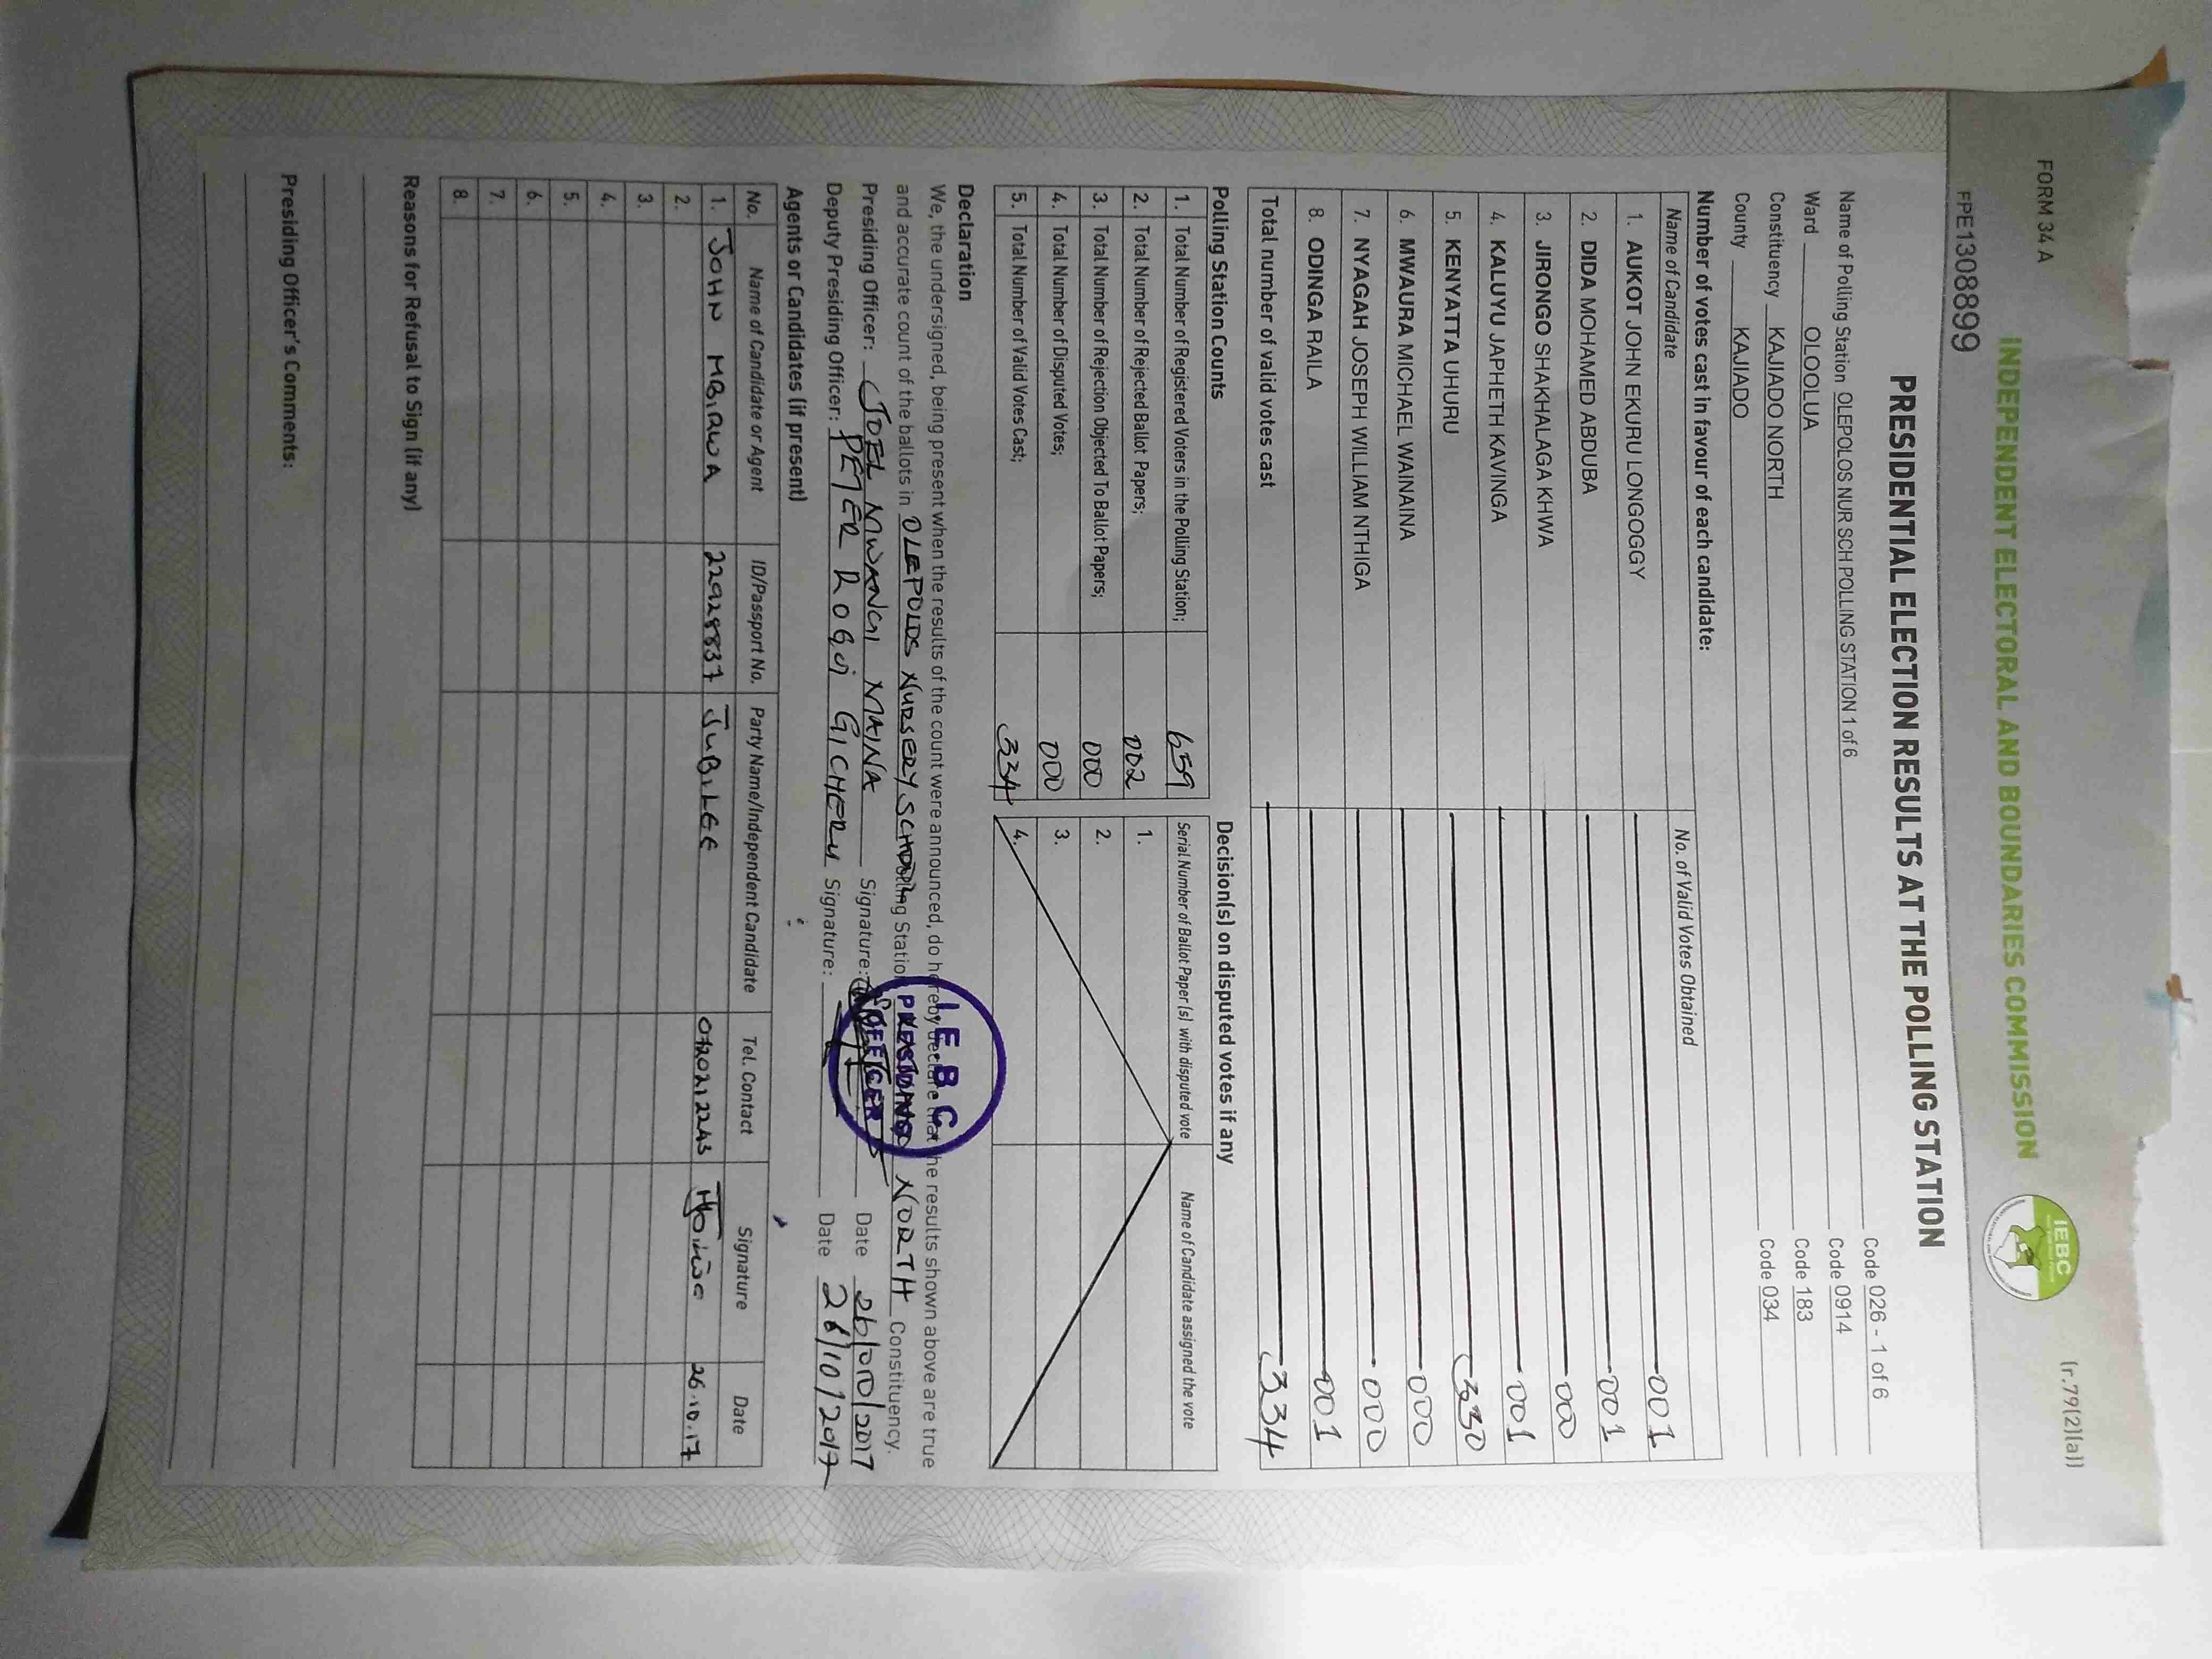 FORM 34 A
(r.79(2)(a))
INDEPENDENT ELECTORAL AND BOUNDARIES COMMISSION
IEBC
FPE1308899
PRESIDENTIAL ELECTION RESULTS AT THE POLLING STATION
Name of Polling Station OLEPOLOS NUR SCH POLLING STATION 1 of 6 Code 026 - 1 of 6
Ward OLOOLUA Code 0914
Constituency KAJIADO NORTH Code 183
County KAJIADO Code 034
Number of votes cast in favour of each candidate:
Name of Candidate No. of Valid Votes Obtained
1. AUKOT JOHN EKURU LONGOGGY 001
2. DIDA MOHAMED ABDUBA 001
3. JIRONGO SHAKHALAGA KHWA 000
4. KALUYU JAPHETH KAVINGA 001
5. KENYATTA UHURU 330
6. MWAURA MICHAEL WAINAINA 000
7. NYAGAH JOSEPH WILLIAM NTHIGA 000
8. ODINGA RAILA 001
Total number of valid votes cast 334
Polling Station Counts
1. Total Number of Registered Voters in the Polling Station; 659
2. Total Number of Rejected Ballot Papers; 002
3. Total Number of Rejection Objected To Ballot Papers; 000
4. Total Number of Disputed Votes; 000
5. Total Number of Valid Votes Cast; 334
Decision(s) on disputed votes if any
Serial Number of Ballot Paper (s) with disputed vote Name of Candidate assigned the vote
1.
2.
3.
4.
Declaration
We, the undersigned, being present when the results of the count were announced, do hereby declare that the results shown above are true
and accurate count of the ballots in OLEPOLOS NURSERY SCHOOL Polling Station NORTH Constituency.
Presiding Officer: JOEL MWANGI MAINA Signature: Date 26/010/2017
Deputy Presiding Officer: PETER ROGOI GICHERU Signature: Date 26/10/2017
I E B C
PRESIDING
OFFICER
Agents or Candidates (if present)
No. Name of Candidate or Agent ID/Passport No. Party Name/Independent Candidate Tel. Contact Signature Date
1. JOHN MBIRWA 22928837 JUBILEE 0720212243 26.10.17
2.
3.
4.
5.
6.
7.
8.
Reasons for Refusal to Sign (if any)
Presiding Officer's Comments: